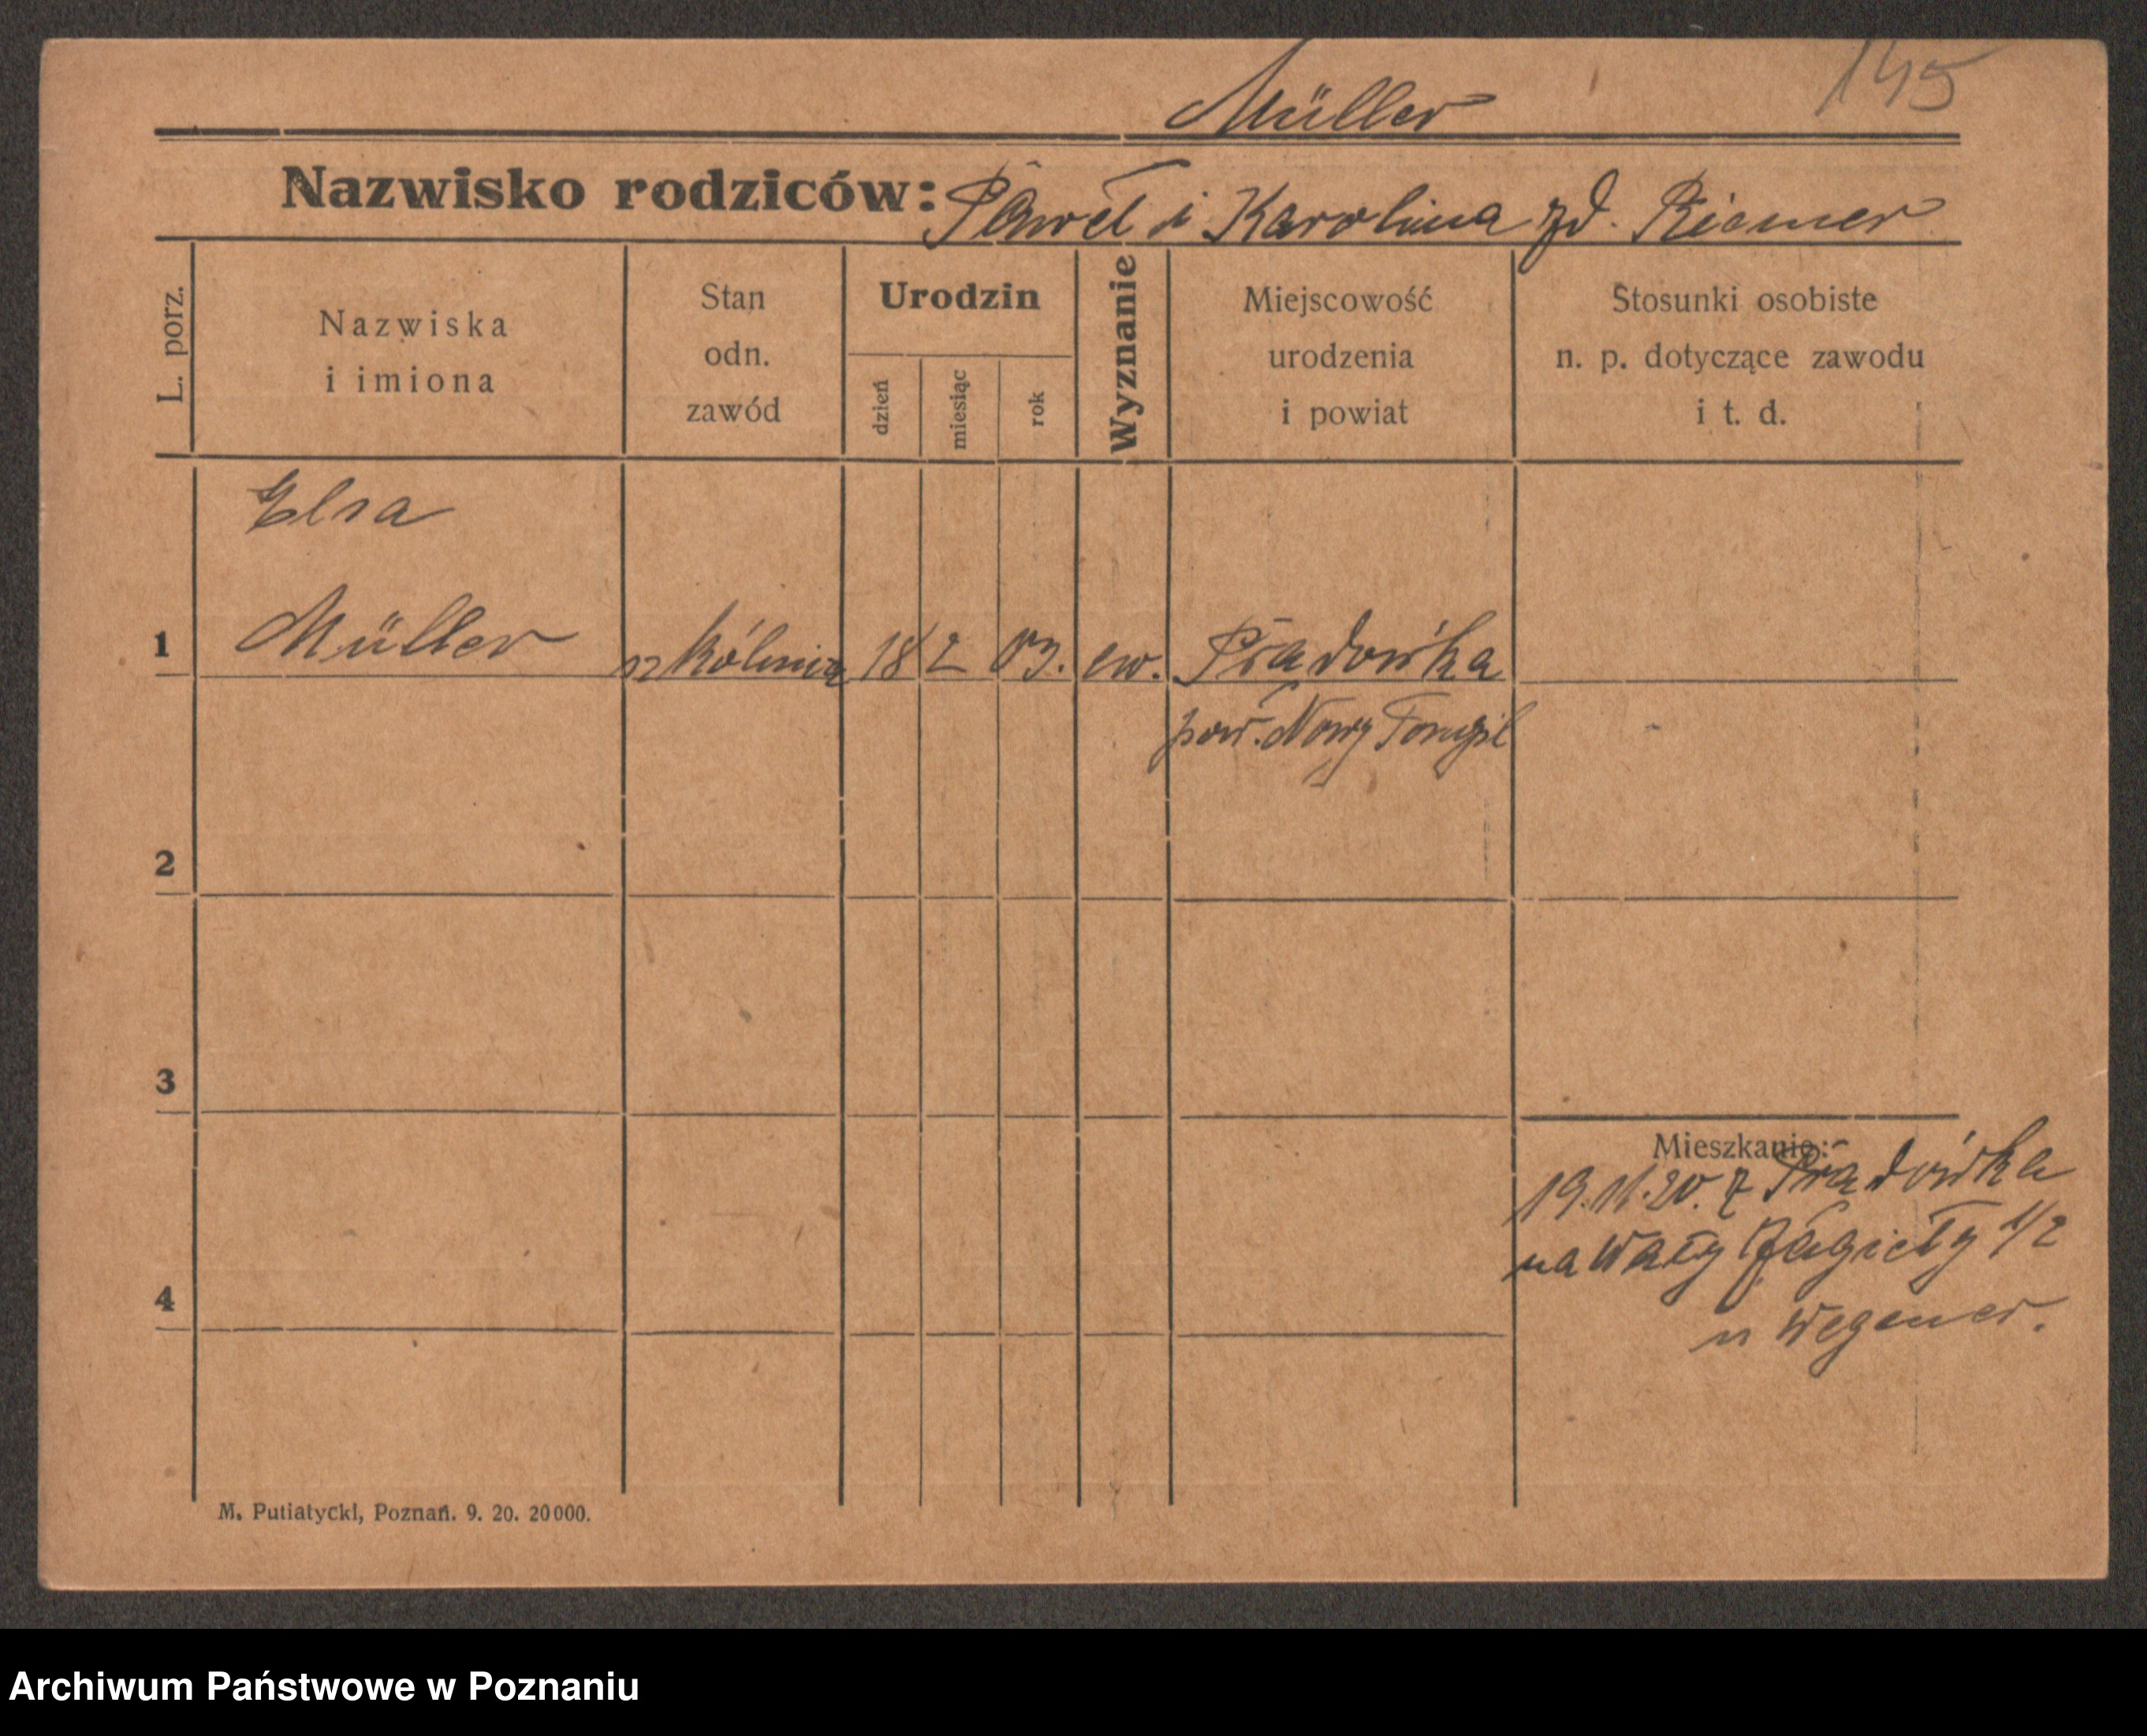 145
Müller
Nazwisko rodziców: Paweł i Karolina zd. Riemer
L. porz.
Nazwiska
i imiona
Stan
odn.
zawód
Urodzin
dzień
miesiąc
rok
Wyznanie
Miejscowość
urodzenia
i powiat
Stosunki osobiste
n. p. dotyczące zawodu
i t. d.
Elsa
1 Müller szkólnia 18 2 03. ew. Prądówka
pow. Nowy Tomyśl
2
3
Mieszkanie:
19.11.20. z Prądówka
na Wały Jagiełły 1/2
u Wegener.
4
M. Putiatycki, Poznań. 9. 20. 20000.
Archiwum Państwowe w Poznaniu